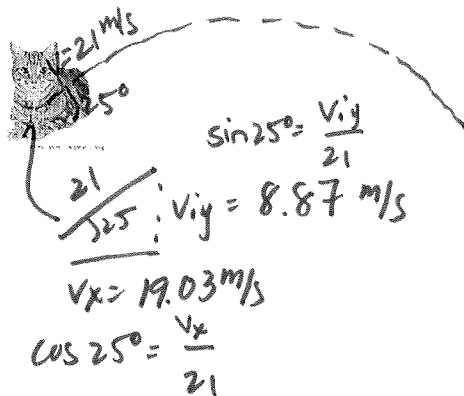 V=21 m/s
25°
sin25°= Viy/21
21
25
Viy = 8.87 m/s
Vx= 19.03 m/s
cos 25°= Vx/21